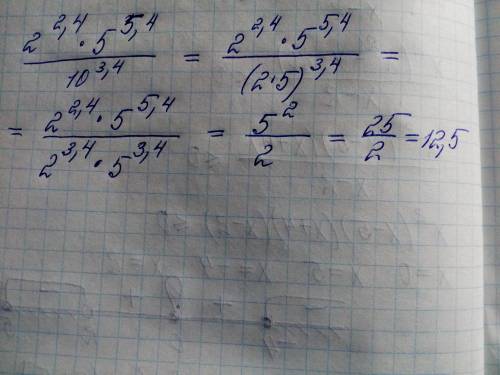 2^2,4 · 5^5,4 / 10^3,4 = 2^2,4 · 5^5,4 / (2·5)^3,4 =
= 2^2,4 · 5^5,4 / 2^3,4 · 5^3,4 = 5^2 / 2 = 25 / 2 = 12,5